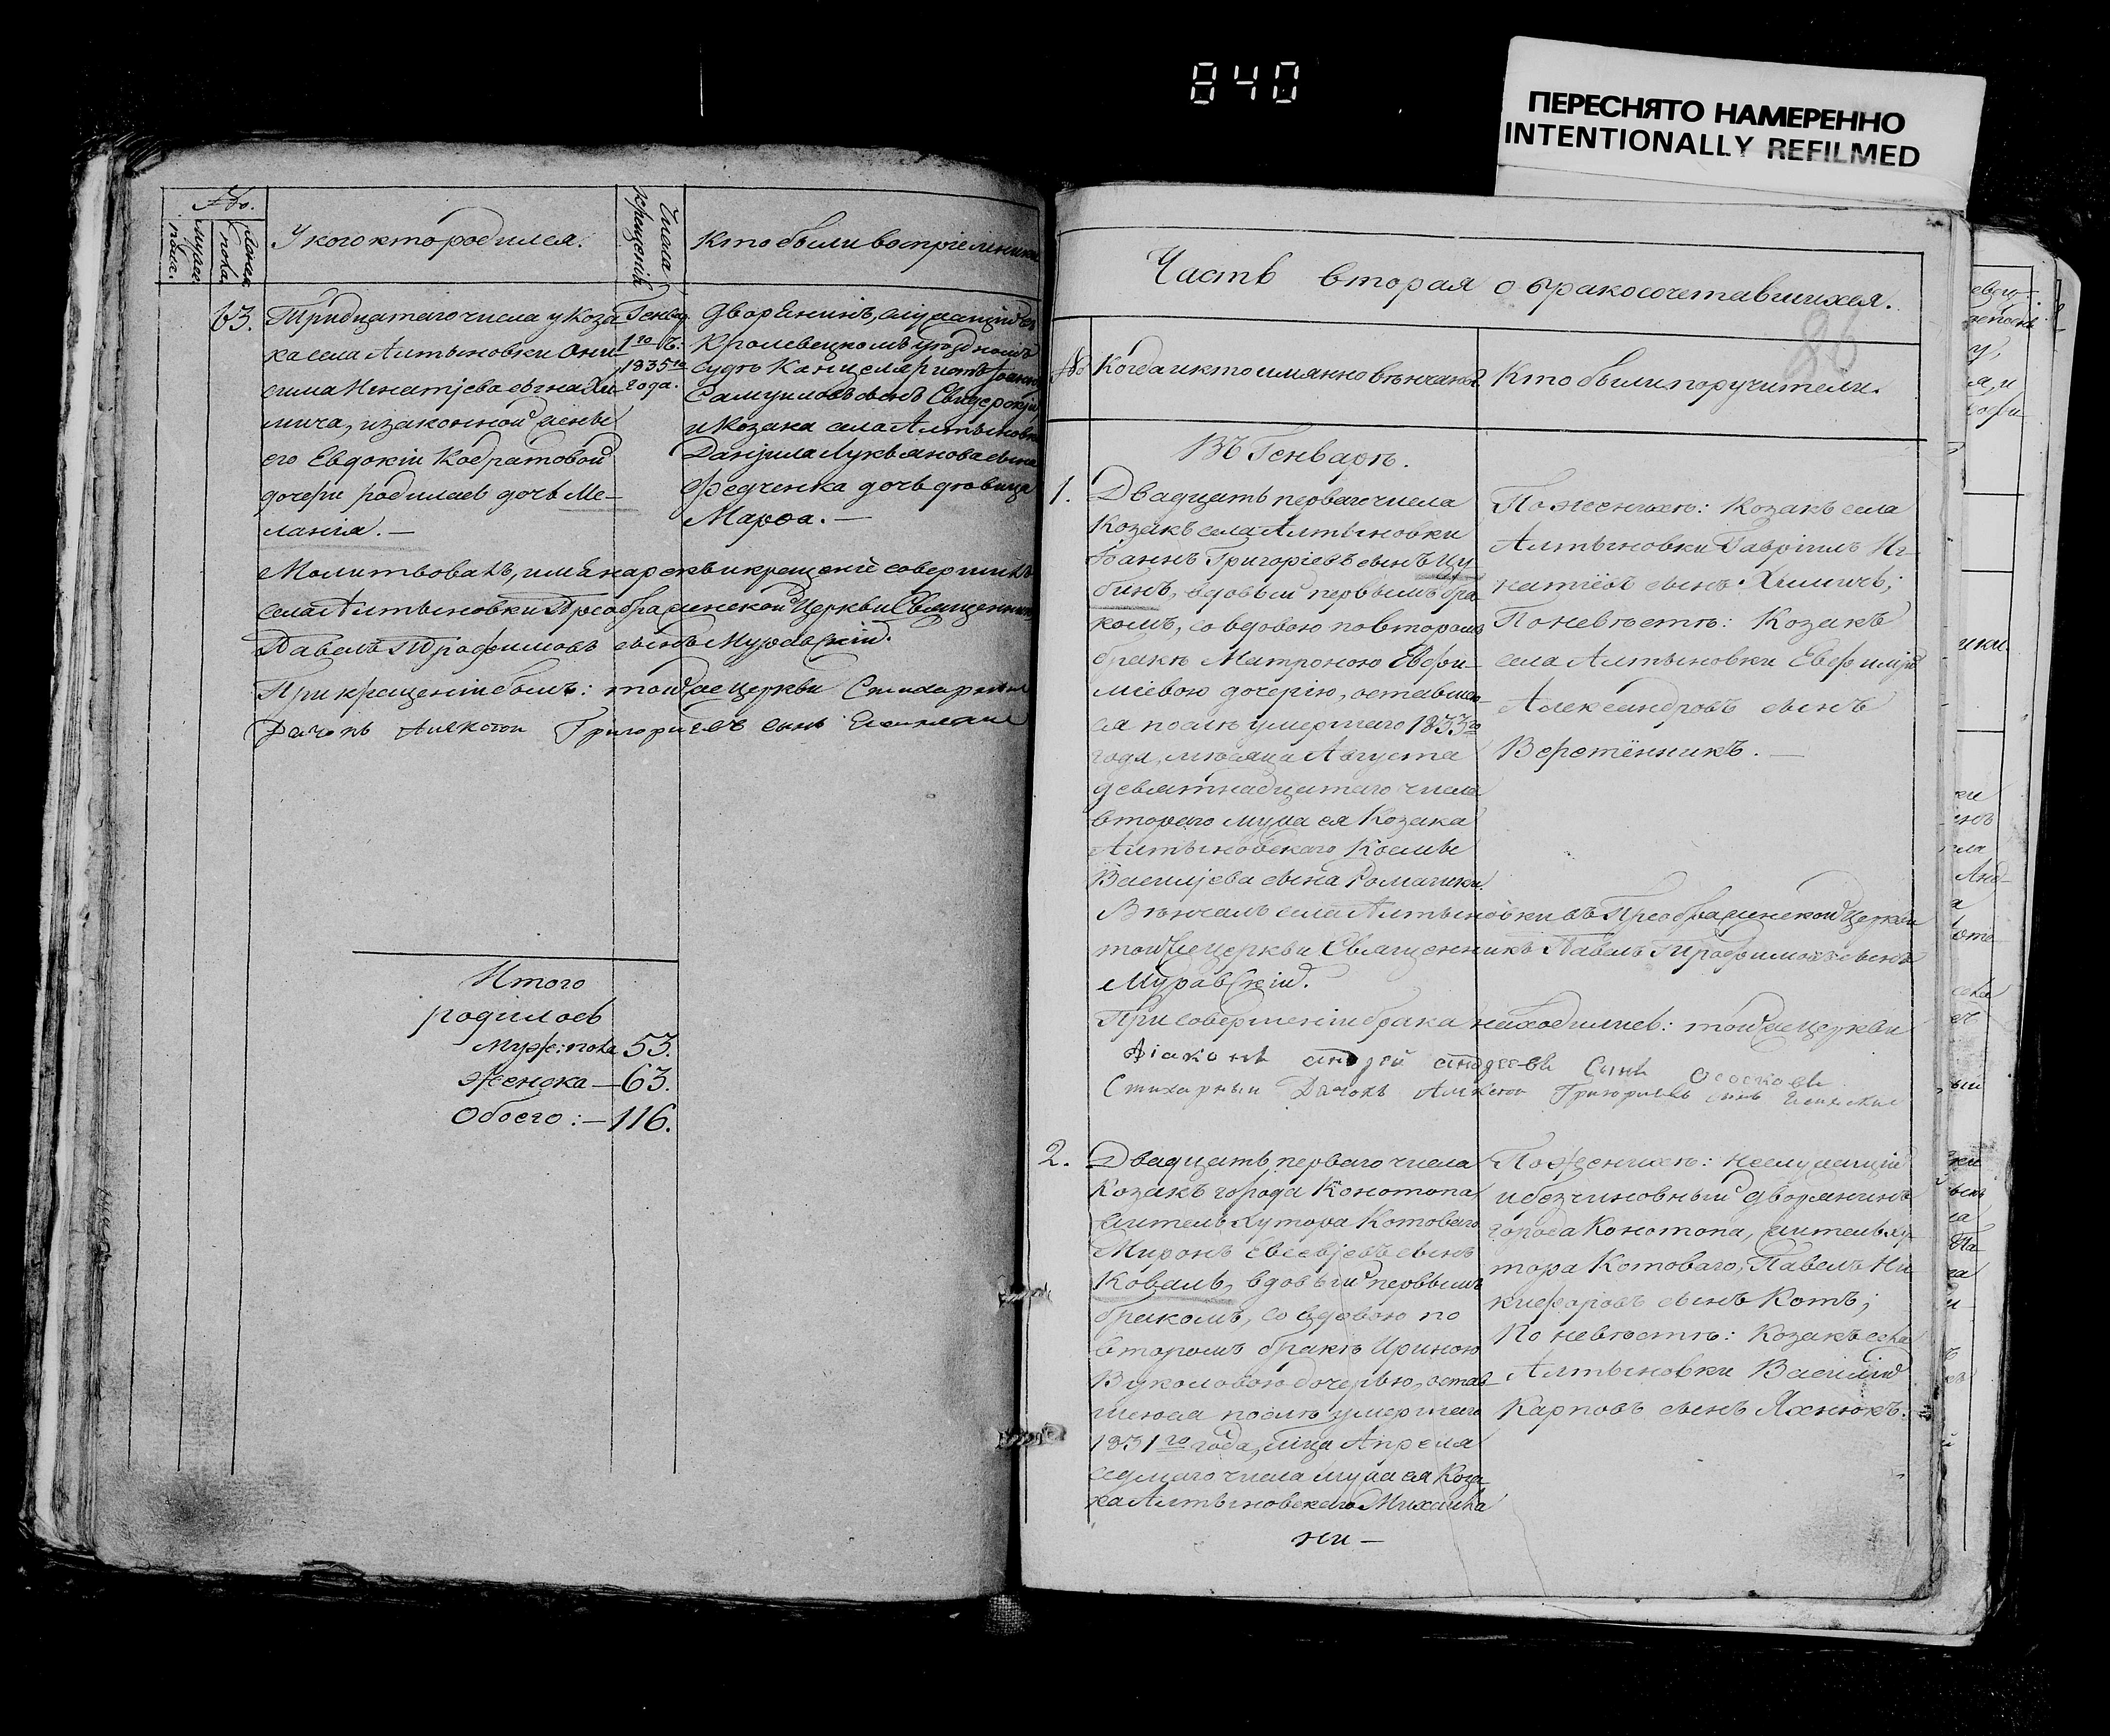 840
ПЕРЕСНЯТО НАМЕРЕННО
INTENTIONALLY REFILMED
№.
мужск. пола.
женск. пола
У кого кто родился.
Числа крещенія
Кто были воспріемники
63.
Тридцатаго числа у Коза
ка села Алтыновки Они
сима Игнатіева сына Хи
мича, и законной жены
его Евдокіи Кодратовой
дочери родилась дочь Ме-
ланія. —
Генвар.
1го ч:
1835го
года.
Дворянинъ, служащій въ
Кролевецкомъ уѣздномъ
судѣ Канцеляристъ Іоаннъ
Самуиловъ сынъ Свидерскій
и Козака села Алтыновки
Даніила Лукьянова сына
Федченка дочь дѣвица
Марѳа. —
Молитвовалъ, имя нарекъ и крещеніе совершилъ
села Алтыновки Преображенской Церкви Священникъ
Павелъ Трофимовъ сынъ Муравскій.
При крещеніи былъ: той же Церкви Стихарный
Дячокъ Алексѣй Григорьевъ сынъ
Итого
родилось
муж: пола 53.
женска — 63.
Обоего: — 116.
Часть вторая о бракосочетавшихся.
86
№
Когда и кто имянно вѣнчаны.
Кто были поручители.
Въ Генварѣ.
1.
Двадцать перваго числа
Козакъ села Алтыновки
Іоаннъ Григоріевъ сынъ Цу
бинъ, вдовый первымъ бра
комъ, со вдовою по второмъ
бракѣ Матроною Евфи-
міевою дочерію, оставшею
ся послѣ умершаго 1833го
года, мѣсяца Августа
девятнадцатаго числа
втораго мужа ея Козака
Алтыновскаго Космы
Василіева сына Ромашки.
По женихѣ: Козакъ села
Алтыновки Гавріилъ Иг-
натіевъ сынъ Химичъ;
По невѣстѣ: Козакъ
села Алтыновки Евфимій
Александровъ сынъ
Веретённикъ. —
Вѣнчалъ села Алтыновки въ Преображенской Церкви
той же церкви Священникъ Павелъ Трофимовъ сынъ
Муравскій.
При совершеніи брака находились: той же Церкви
Діаконъ Андрей Андреевъ Сынъ
Стихарный Дячокъ Алексѣй Григорьевъ сынъ
2.
Двадцать перваго числа
Козакъ города Конотопа,
житель хутора Котоваго
Миронъ Евсевіевъ сынъ
Коваль, вдовый первымъ
бракомъ, со вдовою по
второмъ бракѣ Ириною
Вуколовою дочерью, остав
шеюся послѣ умершаго
1831го года, мца Апреля
седмаго числа мужа ея Коза
ка Алтыновскаго Михаила
По женихѣ: неслужащій
и безчиновный дворянинъ
города Конотопа, житель ху-
тора Котоваго, Павелъ Ни
кифоровъ сынъ Котъ;
По невѣстѣ: Козакъ села
Алтыновки Василій
Карповъ сынъ Яхнюкъ.
ни —